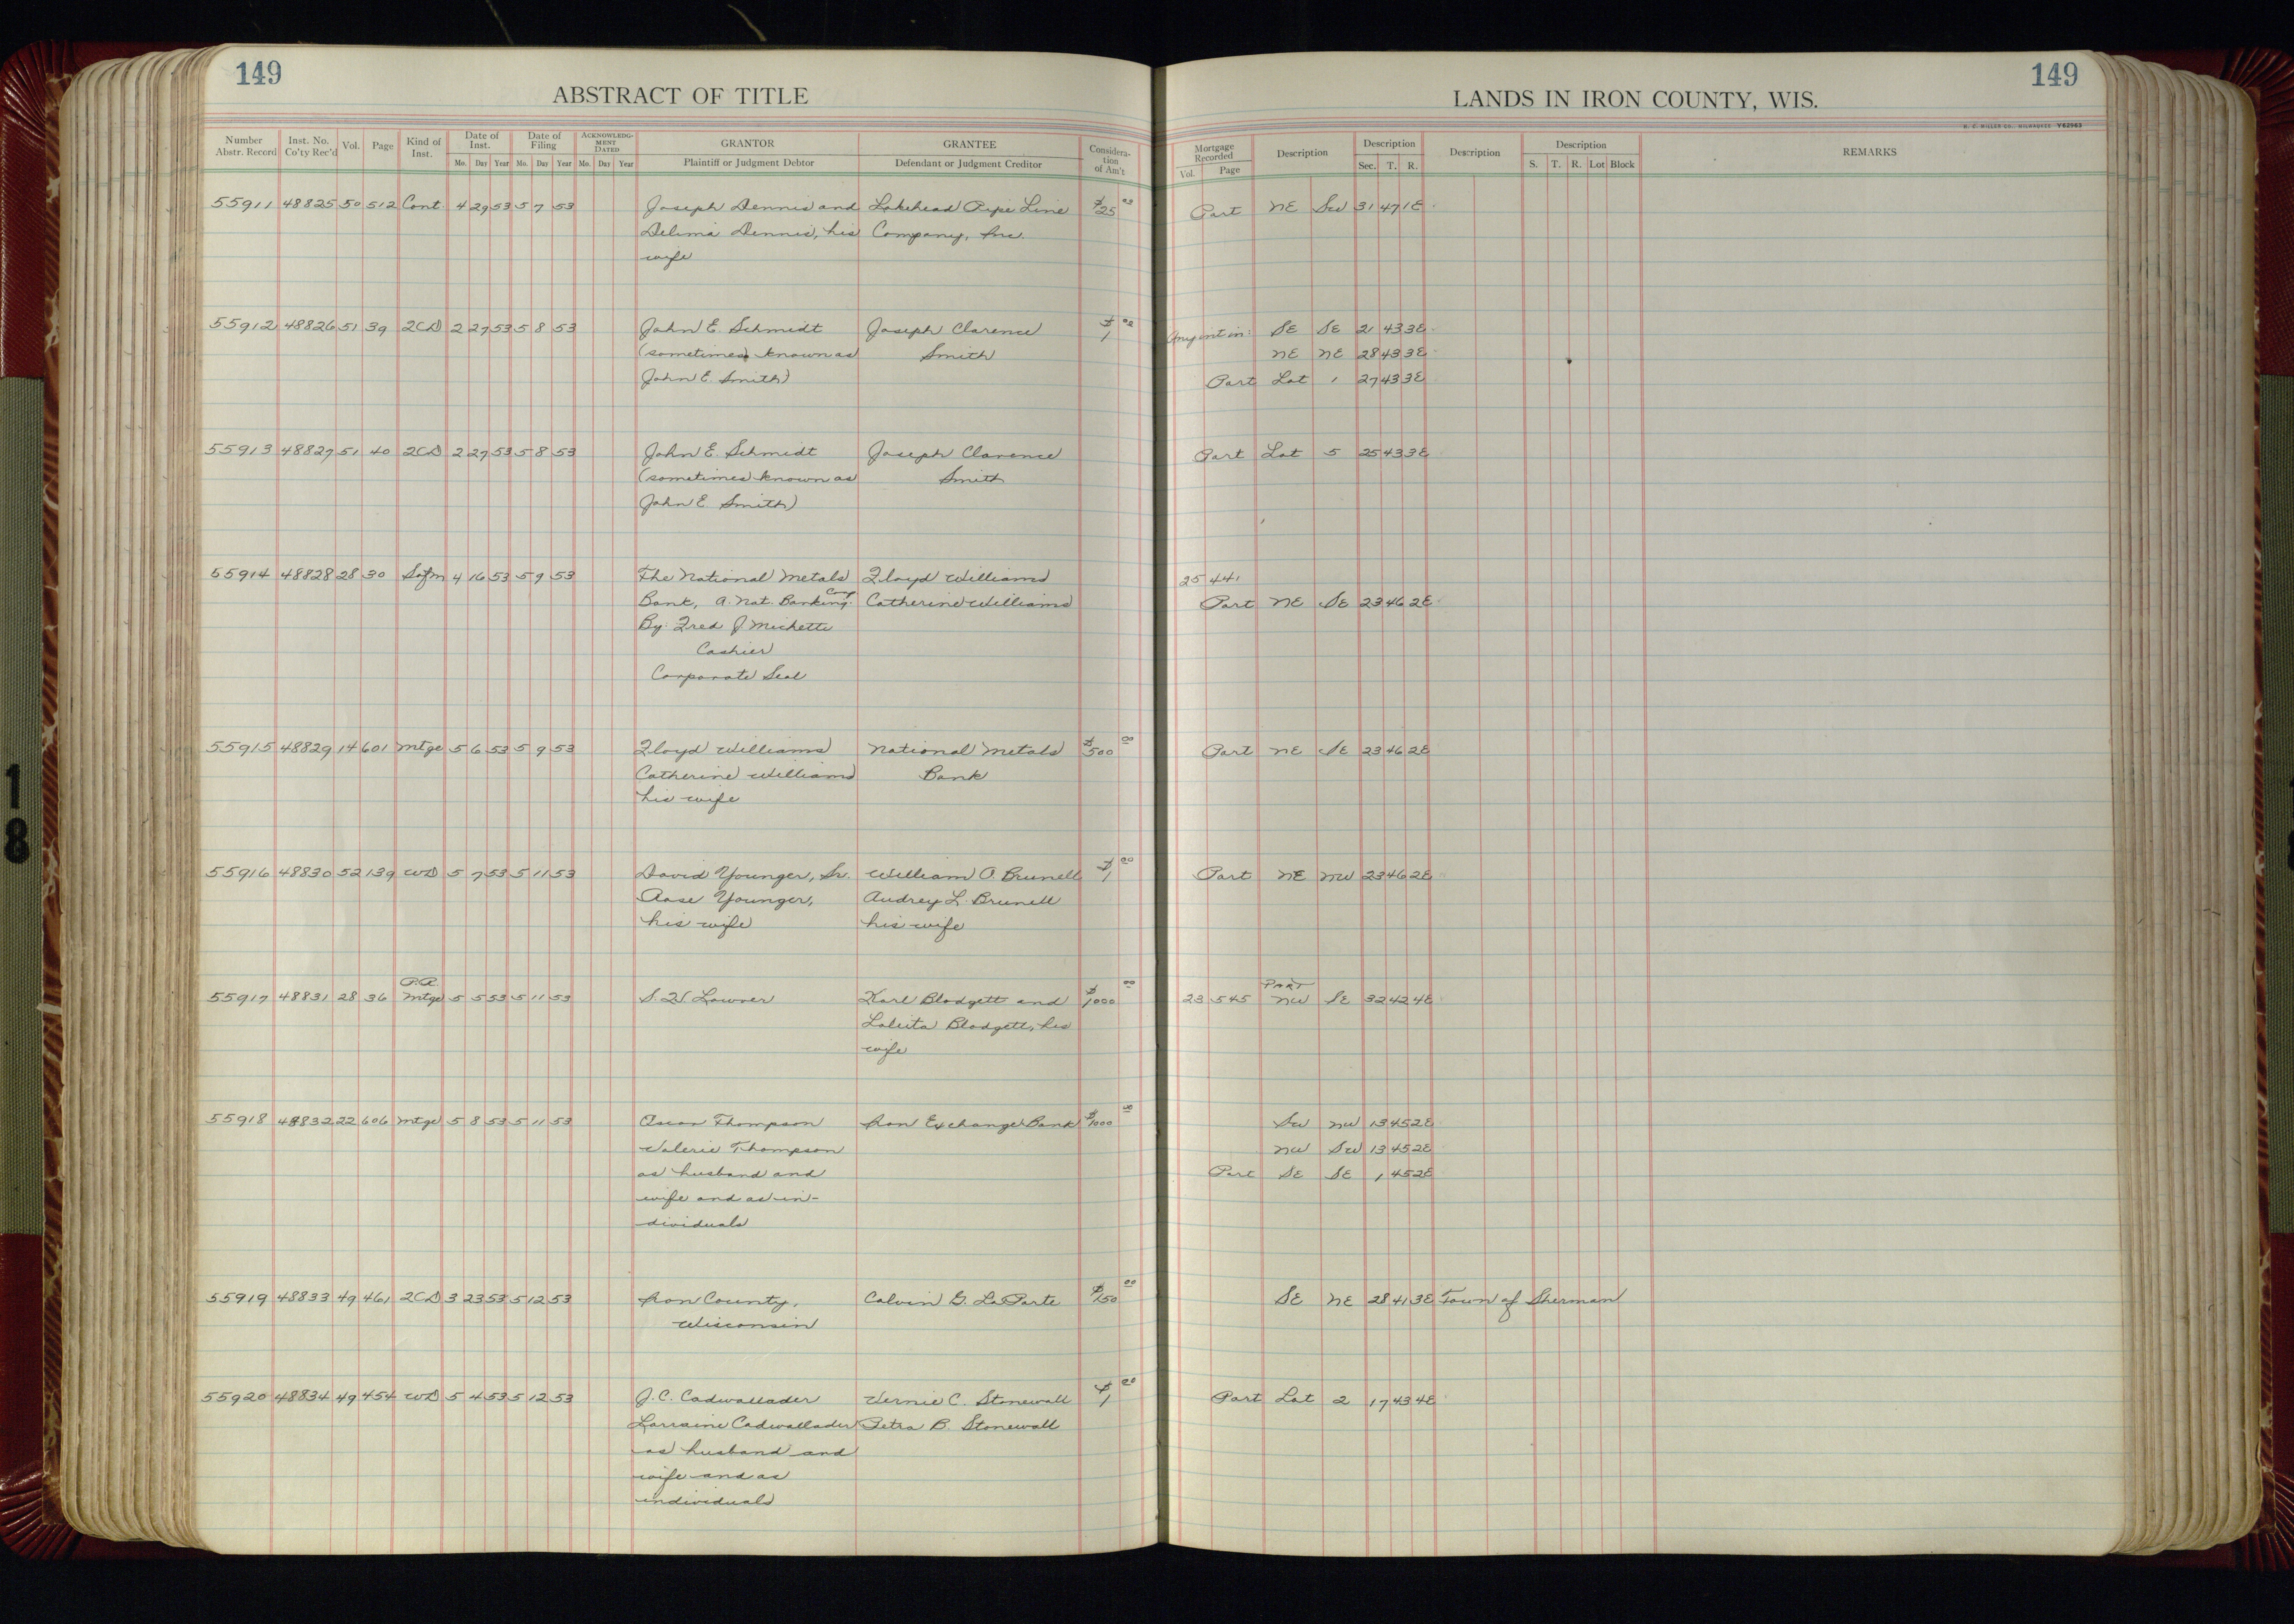 149
ABSTRACT OF TITLE
LANDS IN IRON COUNTY, WIS.
149
H. C. MILLER CO., MILWAUKEE Y62963
Number Abstr. Record Inst. No. Co'ty Rec'd Vol. Page Kind of Inst. Date of Inst. Mo. Day Year Date of Filing Mo. Day Year ACKNOWLEDGMENT DATED Mo. Day Year GRANTOR Plaintiff or Judgment Debtor GRANTEE Defendant or Judgment Creditor Consideration of Am't Mortgage Recorded Vol. Page Description Description Sec. T. R. Description Description S. T. R. Lot Block REMARKS
55911 48825 50 512 Cont. 4 29 53 5 7 53 Joseph Dennis and Lakehead Pipe Line $25 Part NE SW 31 47 1E
Delima Dennis, his Company, Inc.
wife
55912 48826 51 39 2CD 2 27 53 5 8 53 John E. Schmidt Joseph Clarence $1 00 Any int in: SE SE 21 43 3E
(sometimes known as Smith NE NE 28 43 3E
John E. Smith) Part Lot 1 27 43 3E
55913 48827 51 40 2CD 2 27 53 5 8 53 John E. Schmidt Joseph Clarence Part Lot 5 25 43 3E
(sometimes known as Smith
John E. Smith)
55914 48828 28 30 Sofm 4 16 53 5 9 53 The National Metals Floyd Williams 25 441
Bank, a. Nat. Banking Corp. Catherine Williams Part NE SE 23 46 2E
By: Fred J. Michette
Cashier
Corporate Seal
55915 48829 14 601 Mtge 5 6 53 5 9 53 Floyd Williams National Metals $500 00 Part NE SE 23 46 2E
Catherine Williams Bank
his wife
55916 48830 52 139 WD 5 7 53 5 11 53 David Younger, Sr. William O. Brunell $1 00 Part NE NW 23 46 2E
Rose Younger, Audrey L. Brunell
his wife his wife
P.R. PART
55917 48831 28 36 Mtge 5 5 53 5 11 53 Karl Blodgett and $1000 00 23 545 NW SE 32 42 4E
Blodgett, his
wife
55918 48832 22 606 Mtge 5 8 53 5 11 53 Oscar Thompson Iron Exchange Bank $1000 00 SW NW 13 45 2E
Valerie Thompson NW SW 13 45 2E
as husband and Part SE SE 1 45 2E
wife and as in-
dividuals
55919 48833 49 461 2CD 3 23 53 5 12 53 Iron County, Calvin G. LaPorte $150 00 SE NE 28 41 3E Town of Sherman
Wisconsin
55920 48834 49 454 WD 5 4 53 5 12 53 J.C. Cadwallader Vernie C. Stonewall $1 00 Part Lot 2 17 43 4E
Lorraine Cadwallader Petra B. Stonewall
as husband and
wife and as
individuals
18